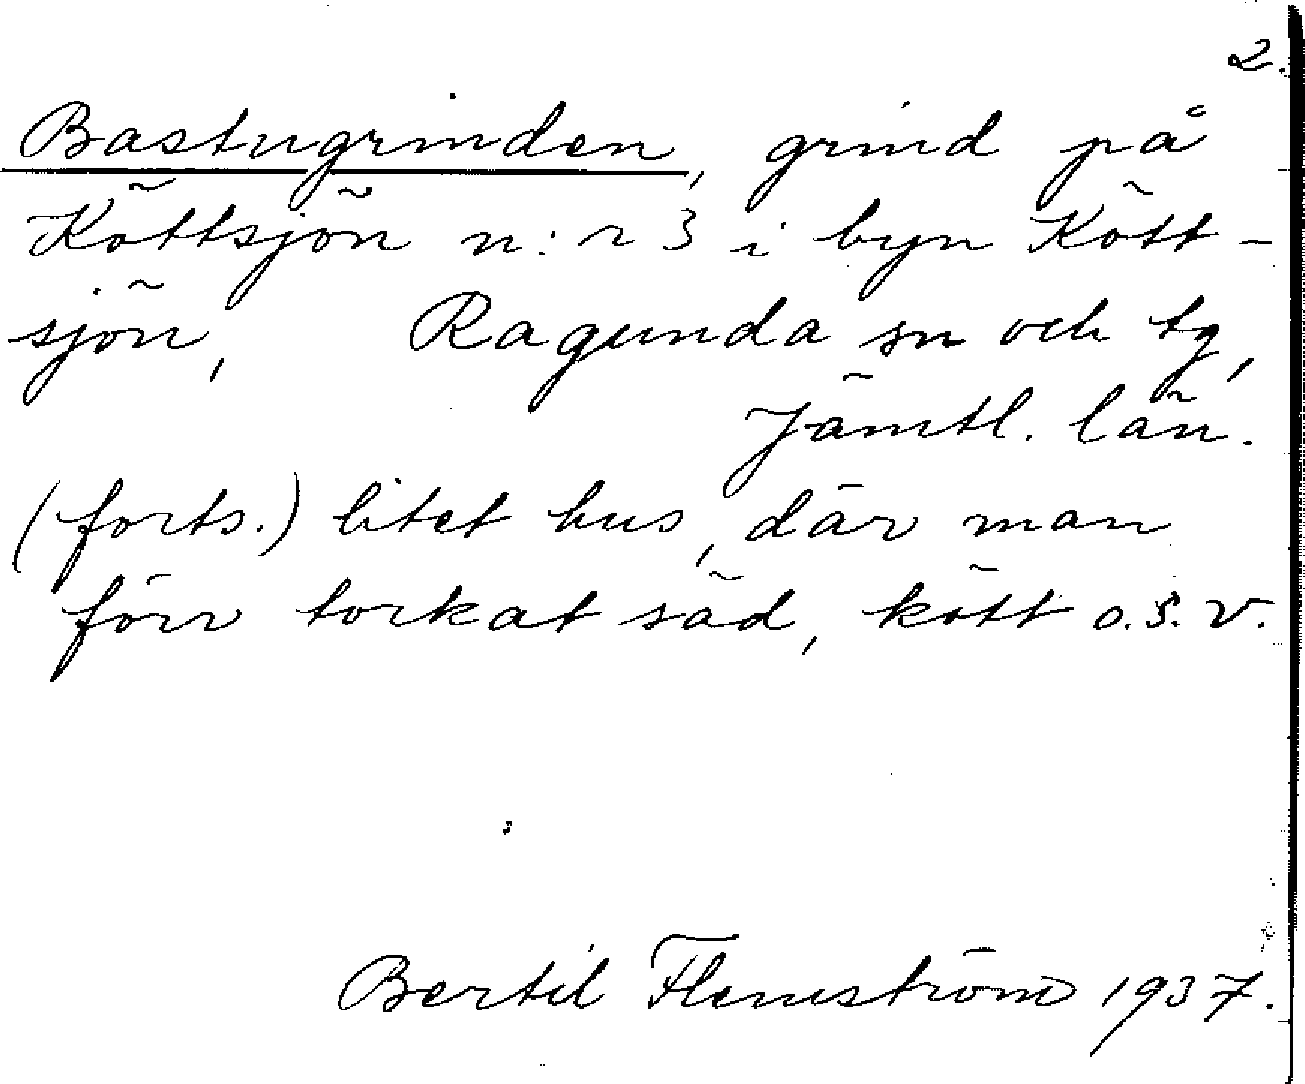 2.
Bastugrinden, grind på
Köttsjön n:r 3 i byn Kött-
sjön, Ragunda sn och tg,
Jämtl. län.
(forts.) litet hus, där man
förr torkat säd, kött o.s.v.
Bertil Flemström 1937.